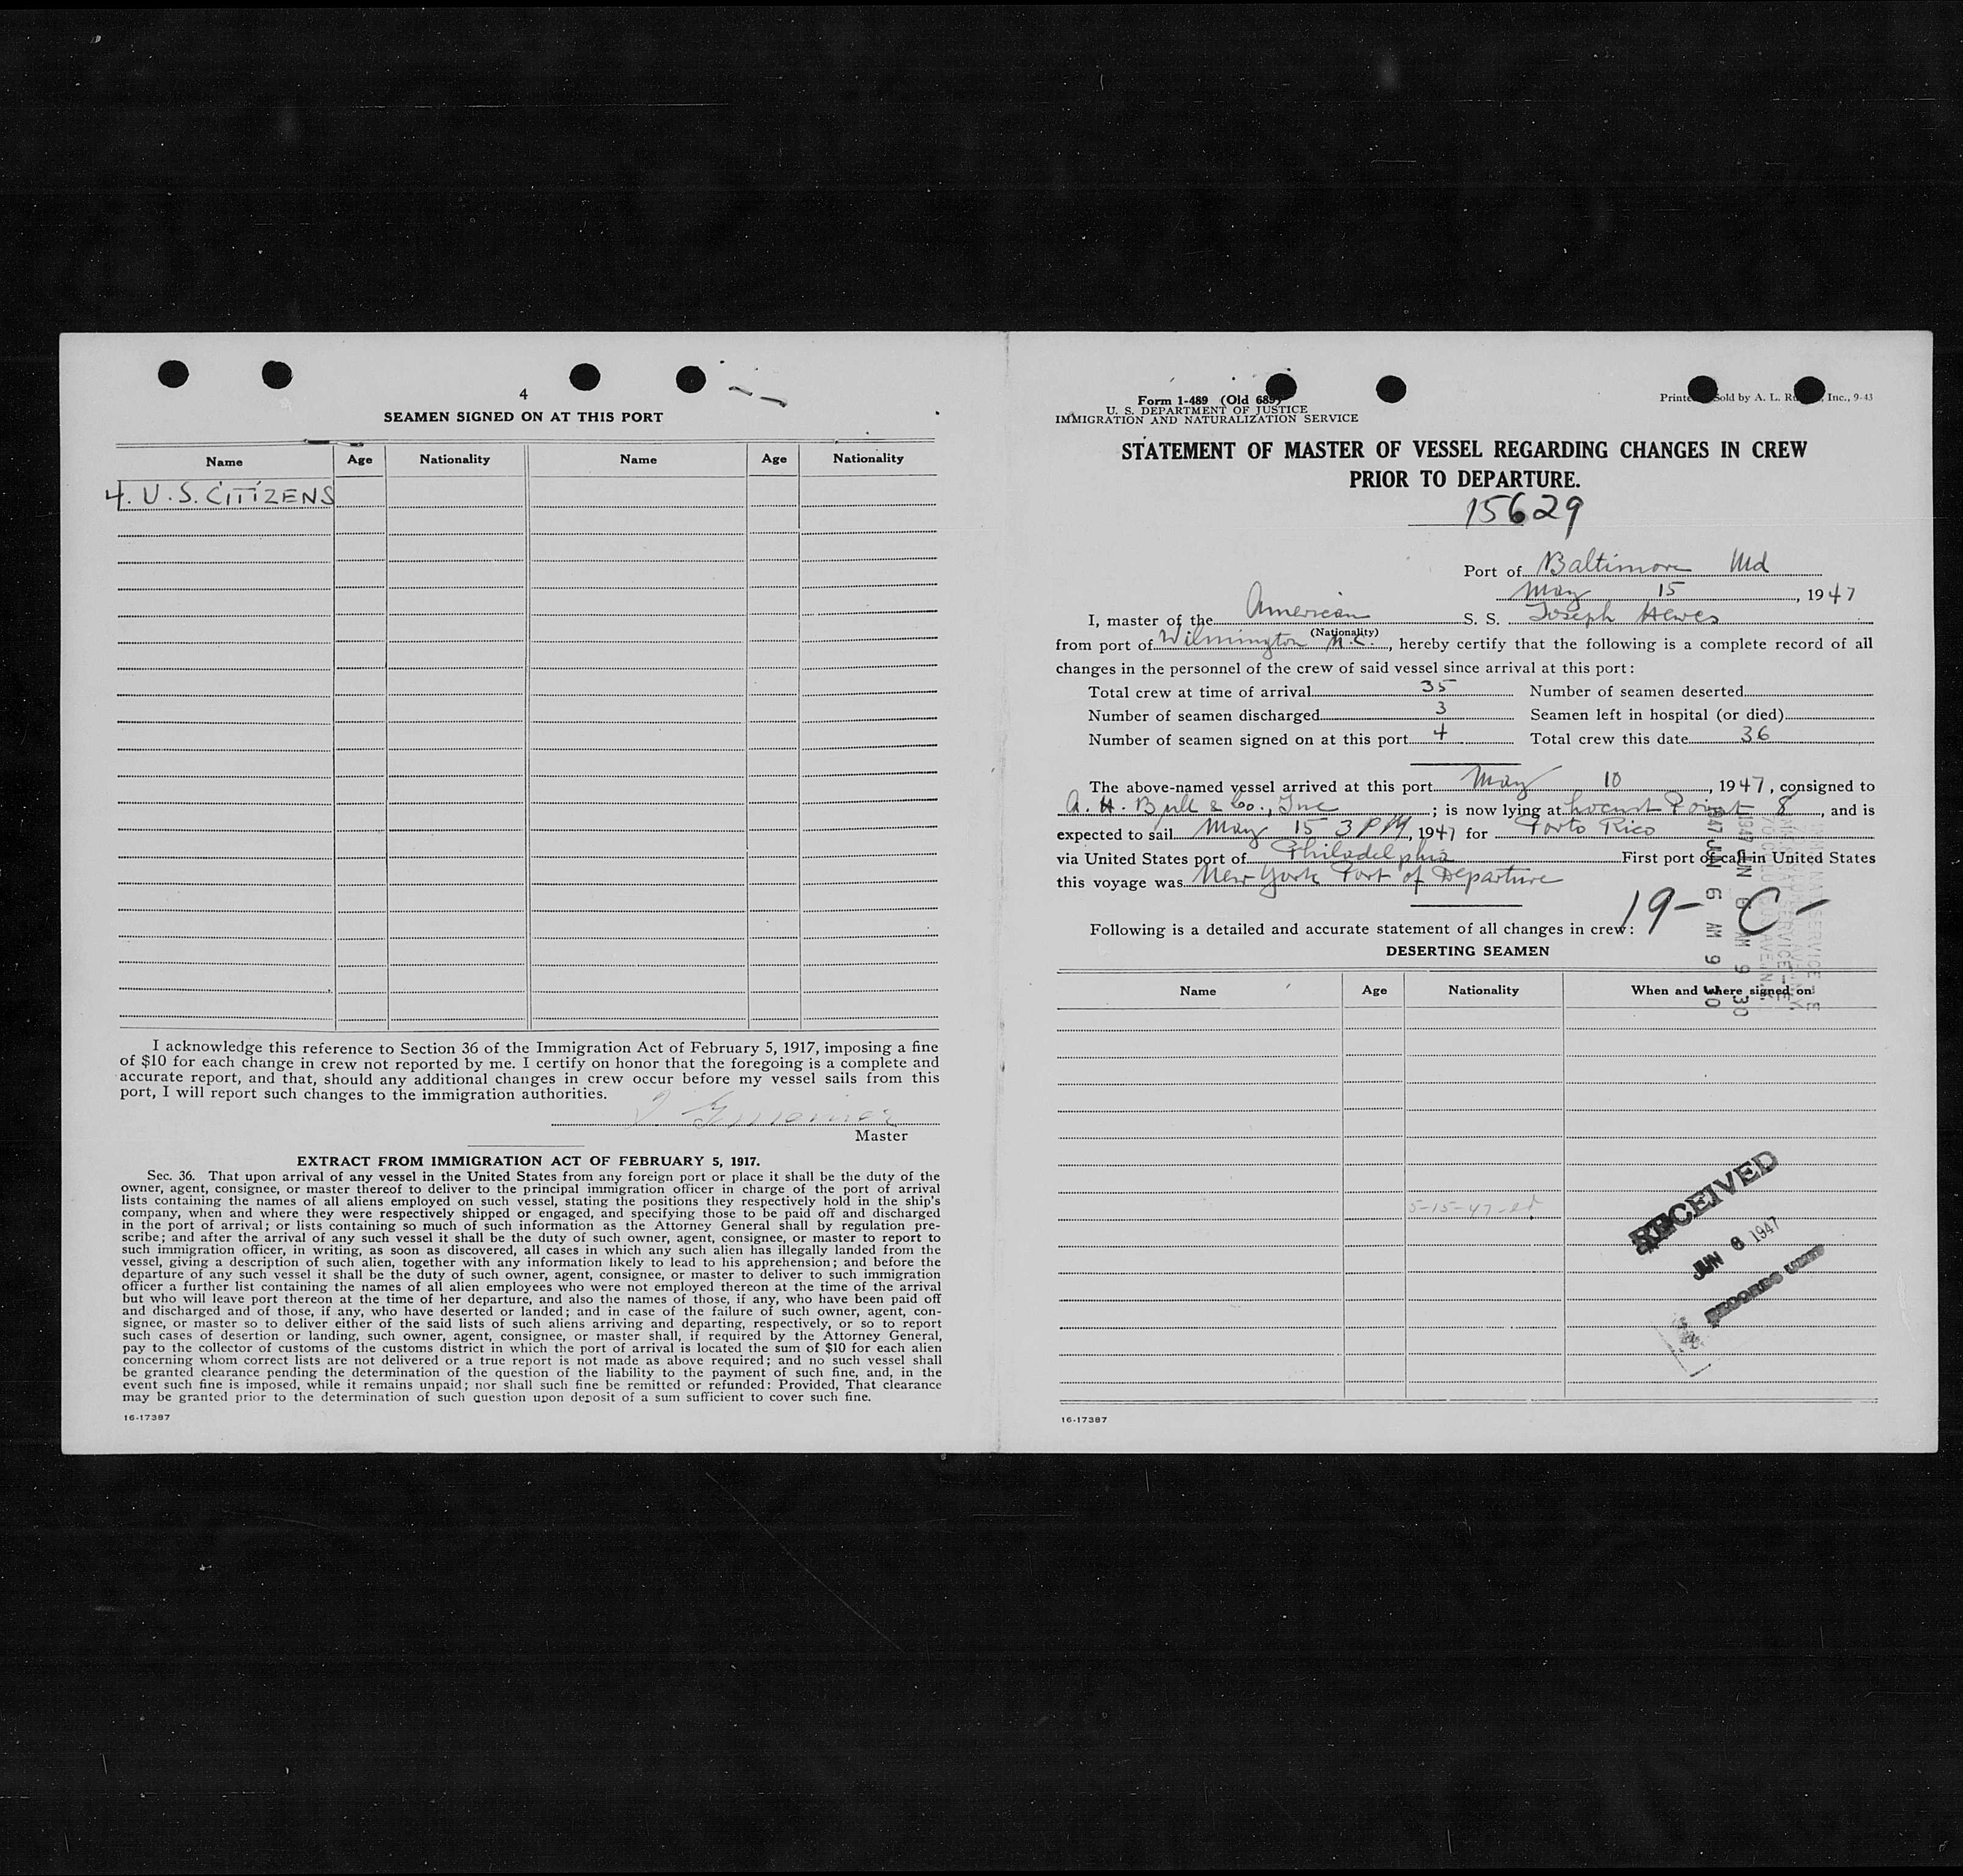 4
SEAMEN SIGNED ON AT THIS PORT
Name Age Nationality Name Age Nationality
4. U.S. CITIZENS
I acknowledge this reference to Section 36 of the Immigration Act of February 5, 1917, imposing a fine
of $10 for each change in crew not reported by me. I certify on honor that the foregoing is a complete and
accurate report, and that, should any additional changes in crew occur before my vessel sails from this
port, I will report such changes to the immigration authorities.
Master
EXTRACT FROM IMMIGRATION ACT OF FEBRUARY 5, 1917.
Sec. 36. That upon arrival of any vessel in the United States from any foreign port or place it shall be the duty of the
owner, agent, consignee, or master thereof to deliver to the principal immigration officer in charge of the port of arrival
lists containing the names of all aliens employed on such vessel, stating the positions they respectively hold in the ship's
company, when and where they were respectively shipped or engaged, and specifying those to be paid off and discharged
in the port of arrival; or lists containing so much of such information as the Attorney General shall by regulation pre-
scribe; and after the arrival of any such vessel it shall be the duty of such owner, agent, consignee, or master to report to
such immigration officer, in writing, as soon as discovered, all cases in which any such alien has illegally landed from the
vessel, giving a description of such alien, together with any information likely to lead to his apprehension; and before the
departure of any such vessel it shall be the duty of such owner, agent, consignee, or master to deliver to such immigration
officer a further list containing the names of all alien employees who were not employed thereon at the time of the arrival
but who will leave port thereon at the time of her departure, and also the names of those, if any, who have been paid off
and discharged and of those, if any, who have deserted or landed; and in case of the failure of such owner, agent, con-
signee, or master so to deliver either of the said lists of such aliens arriving and departing, respectively, or so to report
such cases of desertion or landing, such owner, agent, consignee, or master shall, if required by the Attorney General,
pay to the collector of customs of the customs district in which the port of arrival is located the sum of $10 for each alien
concerning whom correct lists are not delivered or a true report is not made as above required; and no such vessel shall
be granted clearance pending the determination of the question of the liability to the payment of such fine, and, in the
event such fine is imposed, while it remains unpaid; nor shall such fine be remitted or refunded: Provided, That clearance
may be granted prior to the determination of such question upon deposit of a sum sufficient to cover such fine.
16-17387
Form 1-489 (Old 689)
U. S. DEPARTMENT OF JUSTICE
IMMIGRATION AND NATURALIZATION SERVICE
Sold by A. L. Inc., 9-43
STATEMENT OF MASTER OF VESSEL REGARDING CHANGES IN CREW
PRIOR TO DEPARTURE.
15629
Port of Baltimore Md
May 15, 1947
I, master of the American S. S. Joseph Hewes
(Nationality)
from port of Wilmington N.C., hereby certify that the following is a complete record of all
changes in the personnel of the crew of said vessel since arrival at this port:
Total crew at time of arrival 35 Number of seamen deserted
Number of seamen discharged 3 Seamen left in hospital (or died)
Number of seamen signed on at this port 4 Total crew this date 36
The above-named vessel arrived at this port May 10, 1947, consigned to
A. H. Bull & Co., Inc; is now lying at Locust Point 8, and is
expected to sail May 15 3 PM, 1947 for Porto Rico
via United States port of Philadelphia First port of call in United States
this voyage was New York Port of Departure
19- C -
Following is a detailed and accurate statement of all changes in crew:
1947 JUN 6 AM 9 30
DESERTING SEAMEN
Name Age Nationality When and where signed on
5-15-47
RECEIVED
JUN 6 1947
RECORDS UNIT
16-17387